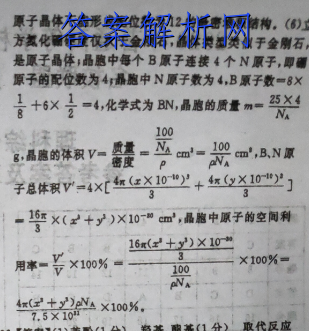 答案解析网
原子晶体
12
密
结构。(6)立
方氮化硼
金刚
晶体类型类似于金刚石,
是原子晶体;晶胞中每个 B 原子连接 4 个 N 原子,即硼
原子的配位数为 4;晶胞中 N 原子数为 4,B 原子数=8×
1/8+6×1/2=4,化学式为 BN,晶胞的质量 m=25×4/N_A
g,晶胞的体积 V=质量/密度=(100/N_A)/ρ cm³=100/(ρN_A) cm³,B、N 原
子总体积 V'=4×[4π(x×10⁻¹⁰)³/3+4π(y×10⁻¹⁰)³/3]
=16π/3×(x³+y³)×10⁻³⁰ cm³,晶胞中原子的空间利
用率=V'/V×100%=(16π(x³+y³)/3×10⁻³⁰)/(100/(ρN_A))×100%=
4π(x³+y³)ρN_A/(7.5×10³¹)×100%。
(1 分) 羟基、酯基(1 分) 取代反应